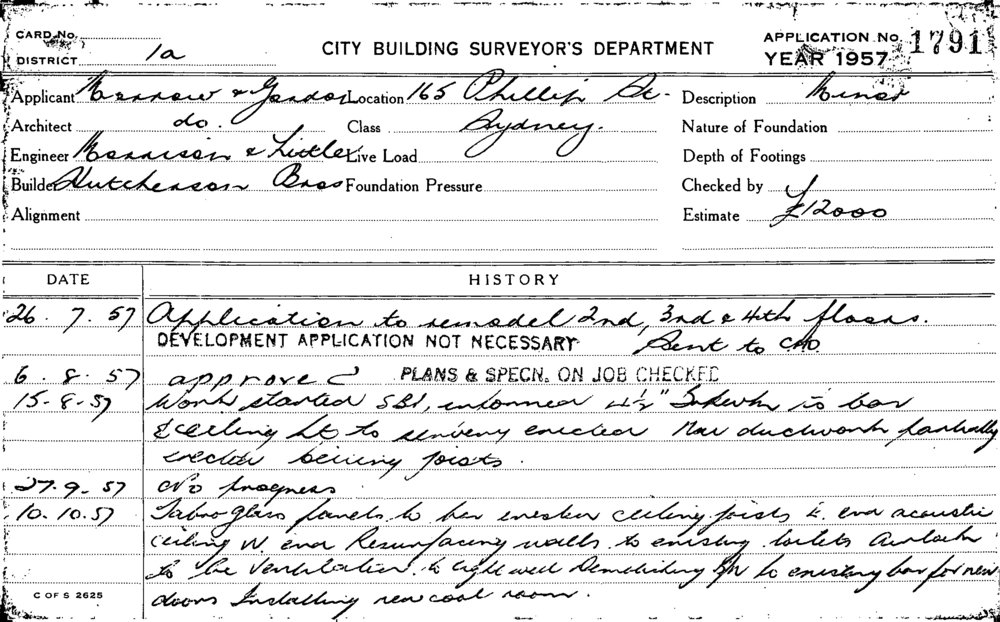 CARD No.
DISTRICT 1a
CITY BUILDING SURVEYOR'S DEPARTMENT
APPLICATION No. 1791
YEAR 1957
Applicant Morrow & Gordon Location 165 Phillip St. Description Minor
Architect do. Class Sydney. Nature of Foundation
Engineer Morrison & Little Live Load Depth of Footings
Builder Hutcherson Bros Foundation Pressure Checked by
Alignment Estimate £12000
DATE HISTORY
26. 7. 57 Application to remodel 2nd, 3rd & 4th floors.
DEVELOPMENT APPLICATION NOT NECESSARY Sent to
6. 8. 57 approved PLANS & SPECN. ON JOB CHECKED
15-8-57 Work started 4½" to bar
& ceiling to servery erected New ductwork partially
erected ceiling joists.
27-9-57 No progress
10.10.57 glass panels to bar erected ceiling joists E. end acoustic
ceiling W. end Resurfacing walls to existing toilets Airlock
to be ventilation to light well Demolishing to existing bar for new
doors Installing new cool room.
C OF S 2625